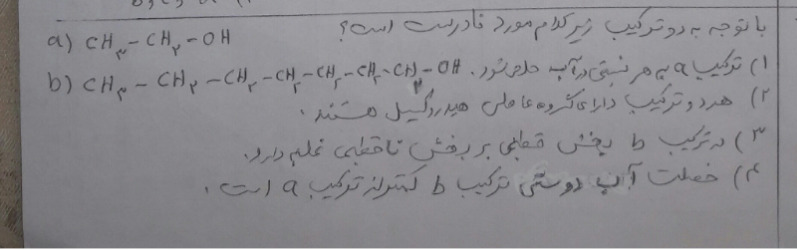 با توجه به دو ترکیب زیر کدام مورد نادرست است؟
a) CH₃-CH₂-OH
b) CH₃-CH₂-CH₂-CH₂-CH₂-CH₂-CH₂-OH
۱) ترکیب a به هر نسبتی در آب حل می‌شود.
۲) هر دو ترکیب دارای گروه عاملی هیدروکسیل هستند.
۳) در ترکیب b بخش قطبی بر بخش ناقطبی غلبه دارد.
۴) خصلت آب دوستی ترکیب b کمتر از ترکیب a است.